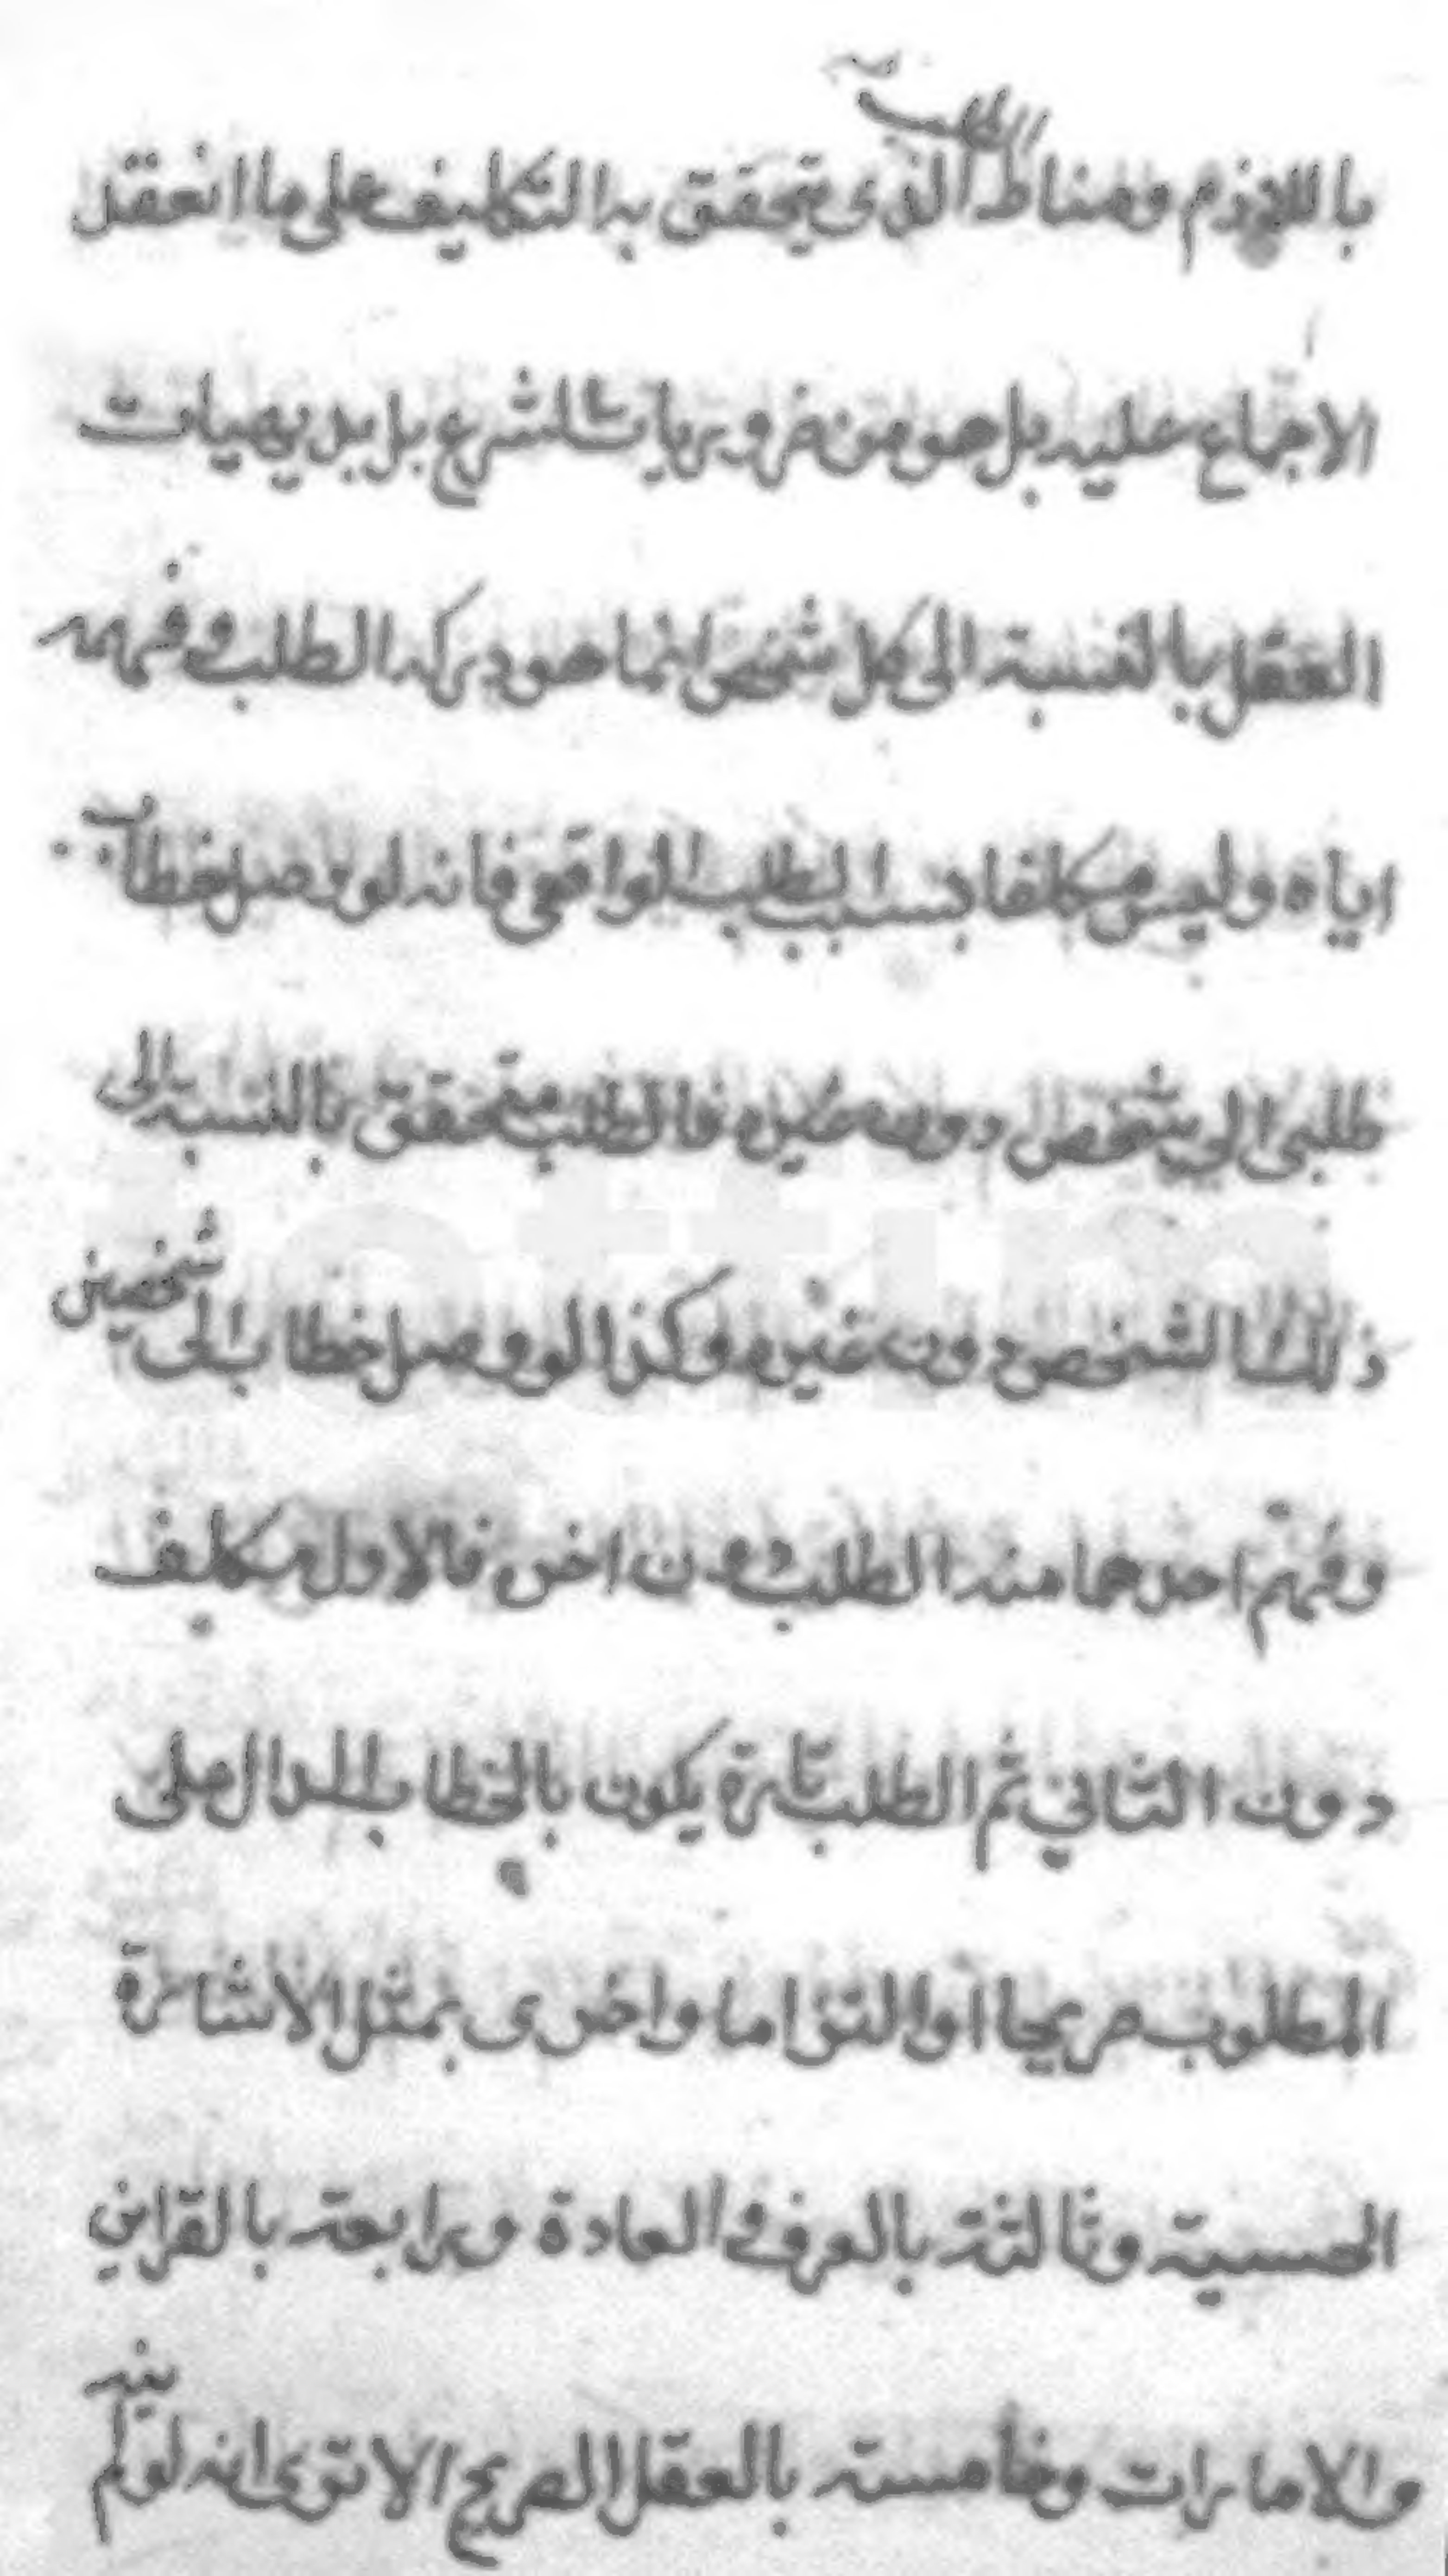 باللازم ومناط الطلب الذى يتحقق به التكليف على ما انعقد
الاجماع عليه بل هو من ضروريات الشرع بل بديهيات
العقل بالنسبة الى كل شخص انما هو دركه الطلب وفهمه
اياه وليس مكلفا بسبب الطلب الواقعى فانه لو وصل خطاب
طلبى الى شخص دون غيره فالطلب متحقق بالنسبة الى
ذلك الشخص دون غيره وكذا لو وصل خطاب الى شخصين
وفهم احدهما منه الطلب دون اخر فالاول مكلف
دون الثاني ثم الطلب تارة يكون بالخطاب الدال على
المطلوب صريحا او التزاما واخرى بمثل الاشارة
الحسية وثالثة بالعرف والعادة ورابعة بالقراين
والامارات وخامسة بالعقل الصريح الا ترى انه لو لم